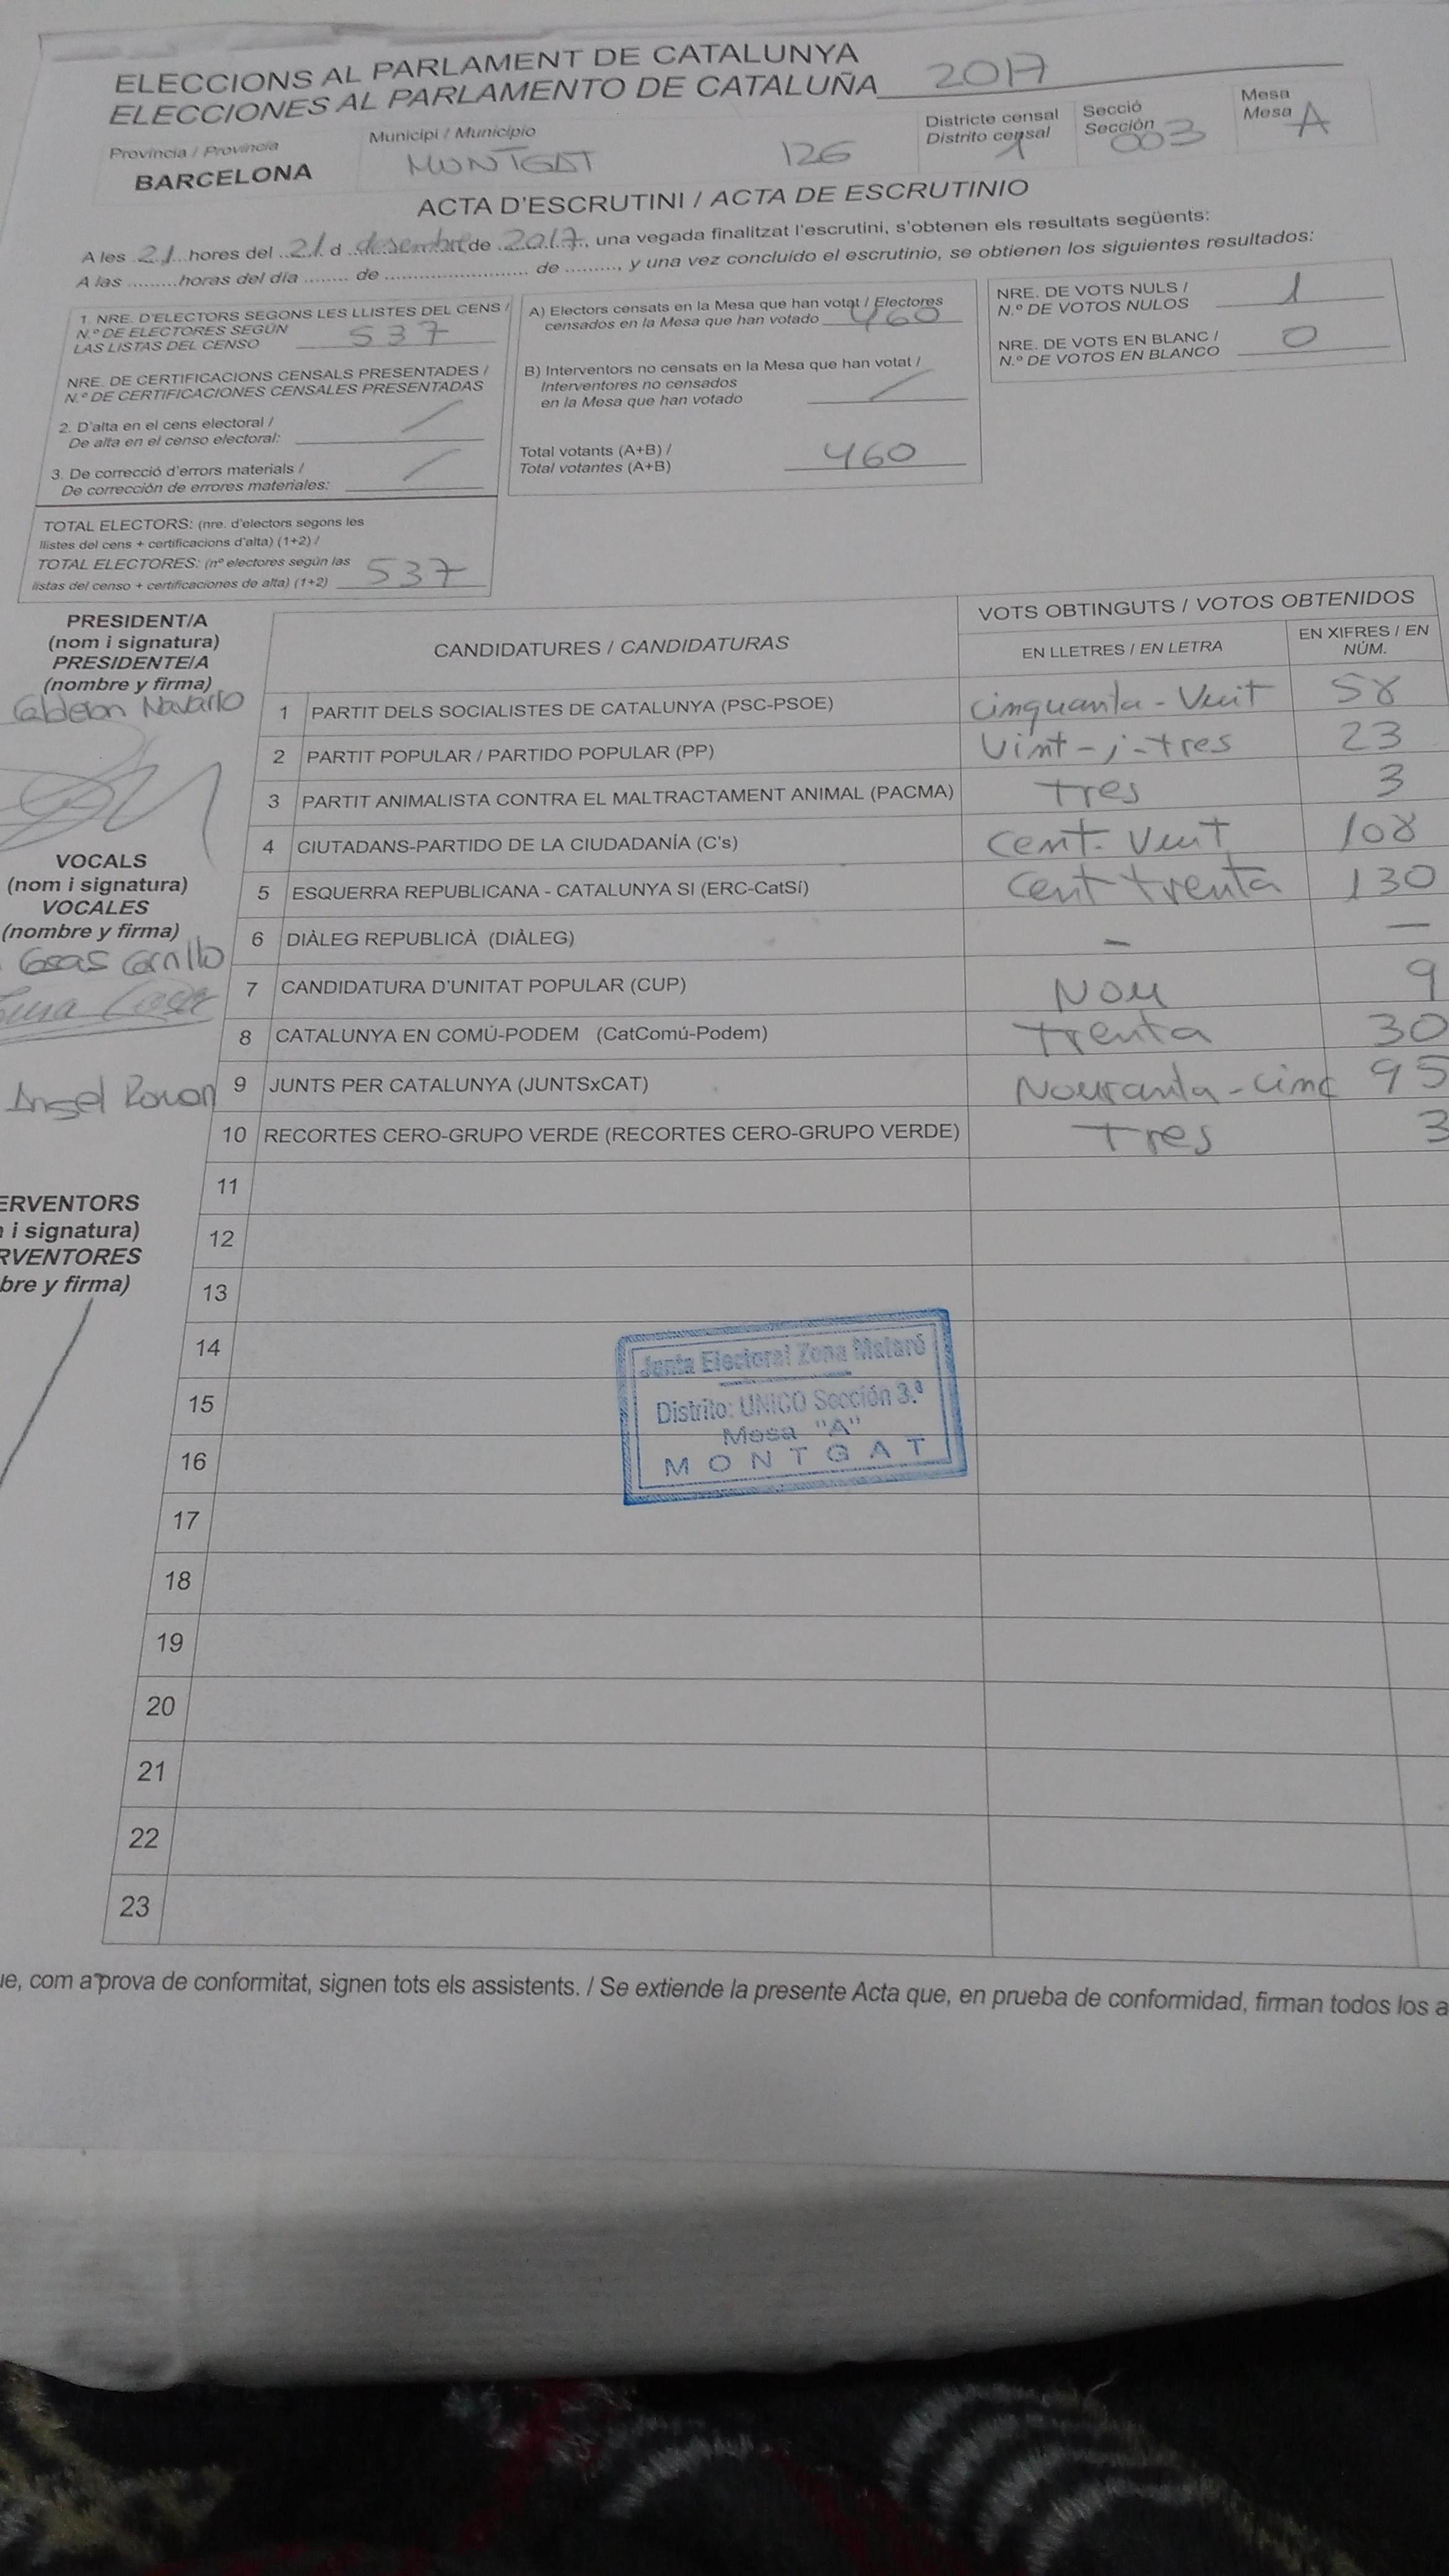 ELECCIONS AL PARLAMENT DE CATALUNYA
ELECCIONES AL PARLAMENTO DE CATALUÑA 2017
Província / Provincia
BARCELONA
Municipi / Municipio
MONTGAT 126
Districte censal
Distrito censal
1
Secció
Sección
003
Mesa
Mesa A
ACTA D'ESCRUTINI / ACTA DE ESCRUTINIO
A les 21 hores del 21 d desembre de 2017, una vegada finalitzat l'escrutini, s'obtenen els resultats següents:
A las .........horas del día ........ de ......................... de .........., y una vez concluido el escrutinio, se obtienen los siguientes resultados:
1. NRE. D'ELECTORS SEGONS LES LLISTES DEL CENS /
N.º DE ELECTORES SEGÚN
LAS LISTAS DEL CENSO 537
NRE. DE CERTIFICACIONS CENSALS PRESENTADES /
N.º DE CERTIFICACIONES CENSALES PRESENTADAS
2. D'alta en el cens electoral /
De alta en el censo electoral: /
3. De correcció d'errors materials /
De corrección de errores materiales: /
TOTAL ELECTORS: (nre. d'electors segons les
llistes del cens + certificacions d'alta) (1+2) /
TOTAL ELECTORES: (nº electores según las
listas del censo + certificaciones de alta) (1+2) 537
A) Electors censats en la Mesa que han votat / Electores
censados en la Mesa que han votado 460
B) Interventors no censats en la Mesa que han votat /
Interventores no censados
en la Mesa que han votado /
Total votants (A+B) /
Total votantes (A+B) 460
NRE. DE VOTS NULS /
N.º DE VOTOS NULOS 1
NRE. DE VOTS EN BLANC /
N.º DE VOTOS EN BLANCO 0
PRESIDENT/A
(nom i signatura)
PRESIDENTE/A
(nombre y firma)
Calderon Navarro
VOCALS
(nom i signatura)
VOCALES
(nombre y firma)
Casas Carrillo
Angel
ERVENTORS
i signatura)
RVENTORES
bre y firma)
CANDIDATURES / CANDIDATURAS
VOTS OBTINGUTS / VOTOS OBTENIDOS
EN LLETRES / EN LETRA
EN XIFRES / EN
NÚM.
1 PARTIT DELS SOCIALISTES DE CATALUNYA (PSC-PSOE) cinquanta-Vuit 58
2 PARTIT POPULAR / PARTIDO POPULAR (PP) Vint-i-tres 23
3 PARTIT ANIMALISTA CONTRA EL MALTRACTAMENT ANIMAL (PACMA) Tres 3
4 CIUTADANS-PARTIDO DE LA CIUDADANÍA (C's) Cent-Vuit 108
5 ESQUERRA REPUBLICANA - CATALUNYA SI (ERC-CatSí) Cent trenta 130
6 DIÀLEG REPUBLICÀ (DIÀLEG) - —
7 CANDIDATURA D'UNITAT POPULAR (CUP) Nou 9
8 CATALUNYA EN COMÚ-PODEM (CatComú-Podem) Trenta 30
9 JUNTS PER CATALUNYA (JUNTSxCAT) Nouranta-cinc 95
10 RECORTES CERO-GRUPO VERDE (RECORTES CERO-GRUPO VERDE) Tres 3
11
12
13
14
15
16
17
18
19
20
21
22
23
Junta Electoral Zona Mataró
Distrito: UNICO Sección 3.ª
Mesa "A"
MONTGAT
ue, com a prova de conformitat, signen tots els assistents. / Se extiende la presente Acta que, en prueba de conformidad, firman todos los a